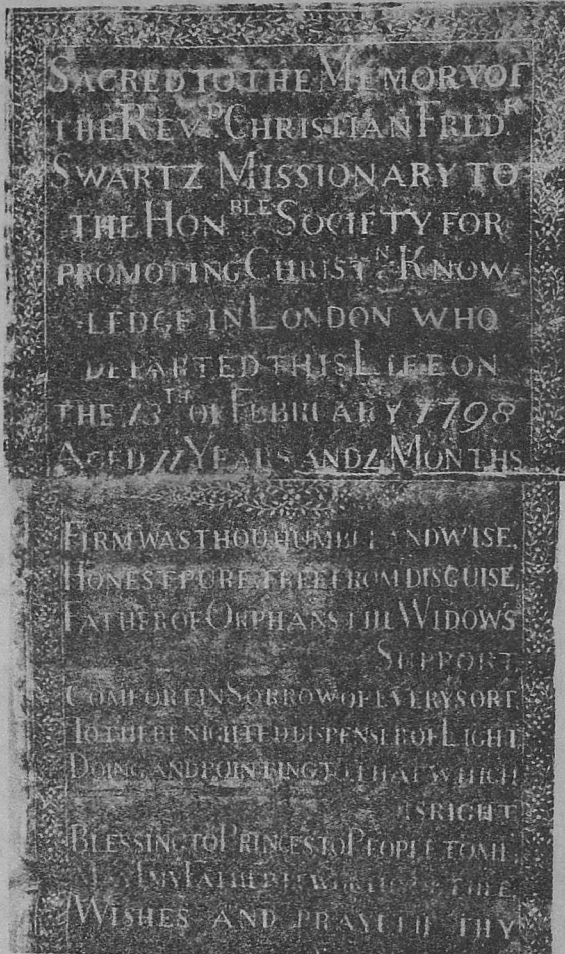 SACRED TO THE MEMORY OF
THE REV.D CHRISTIAN FRED.K
SWARTZ MISSIONARY TO
THE HON.BLE SOCIETY FOR
PROMOTING CHRIST.N KNOW-
LEDGE IN LONDON WHO
DEPARTED THIS LIFE ON
THE 13TH OF FEBRUARY 1798
AGED 71 YEARS AND 4 MONTHS
FIRM WAST THOU HUMBLE AND WISE,
HONEST PURE, FREE FROM DISGUISE,
FATHER OF ORPHANS THE WIDOWS
SUPPORT,
COMFORT IN SORROW OF EVERY SORT,
TO THE BENIGHTED DISPENSER OF LIGHT
DOING AND POINTING TO THAT WHICH
IS RIGHT
BLESSING TO PRINCES TO PEOPLE TO ME,
MAY I MY FATHER BE WORTHY OF THEE,
WISHES AND PRAYETH THY